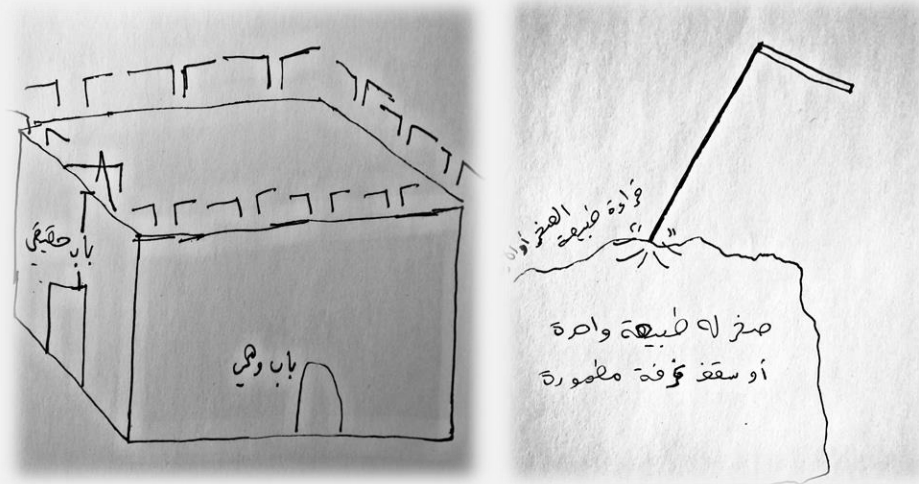 باب حقيقي
باب وهمي
قراءة طبيعة
الصخر أو
صخر له طبيعة واحدة
أو سقف غرفة مطمورة